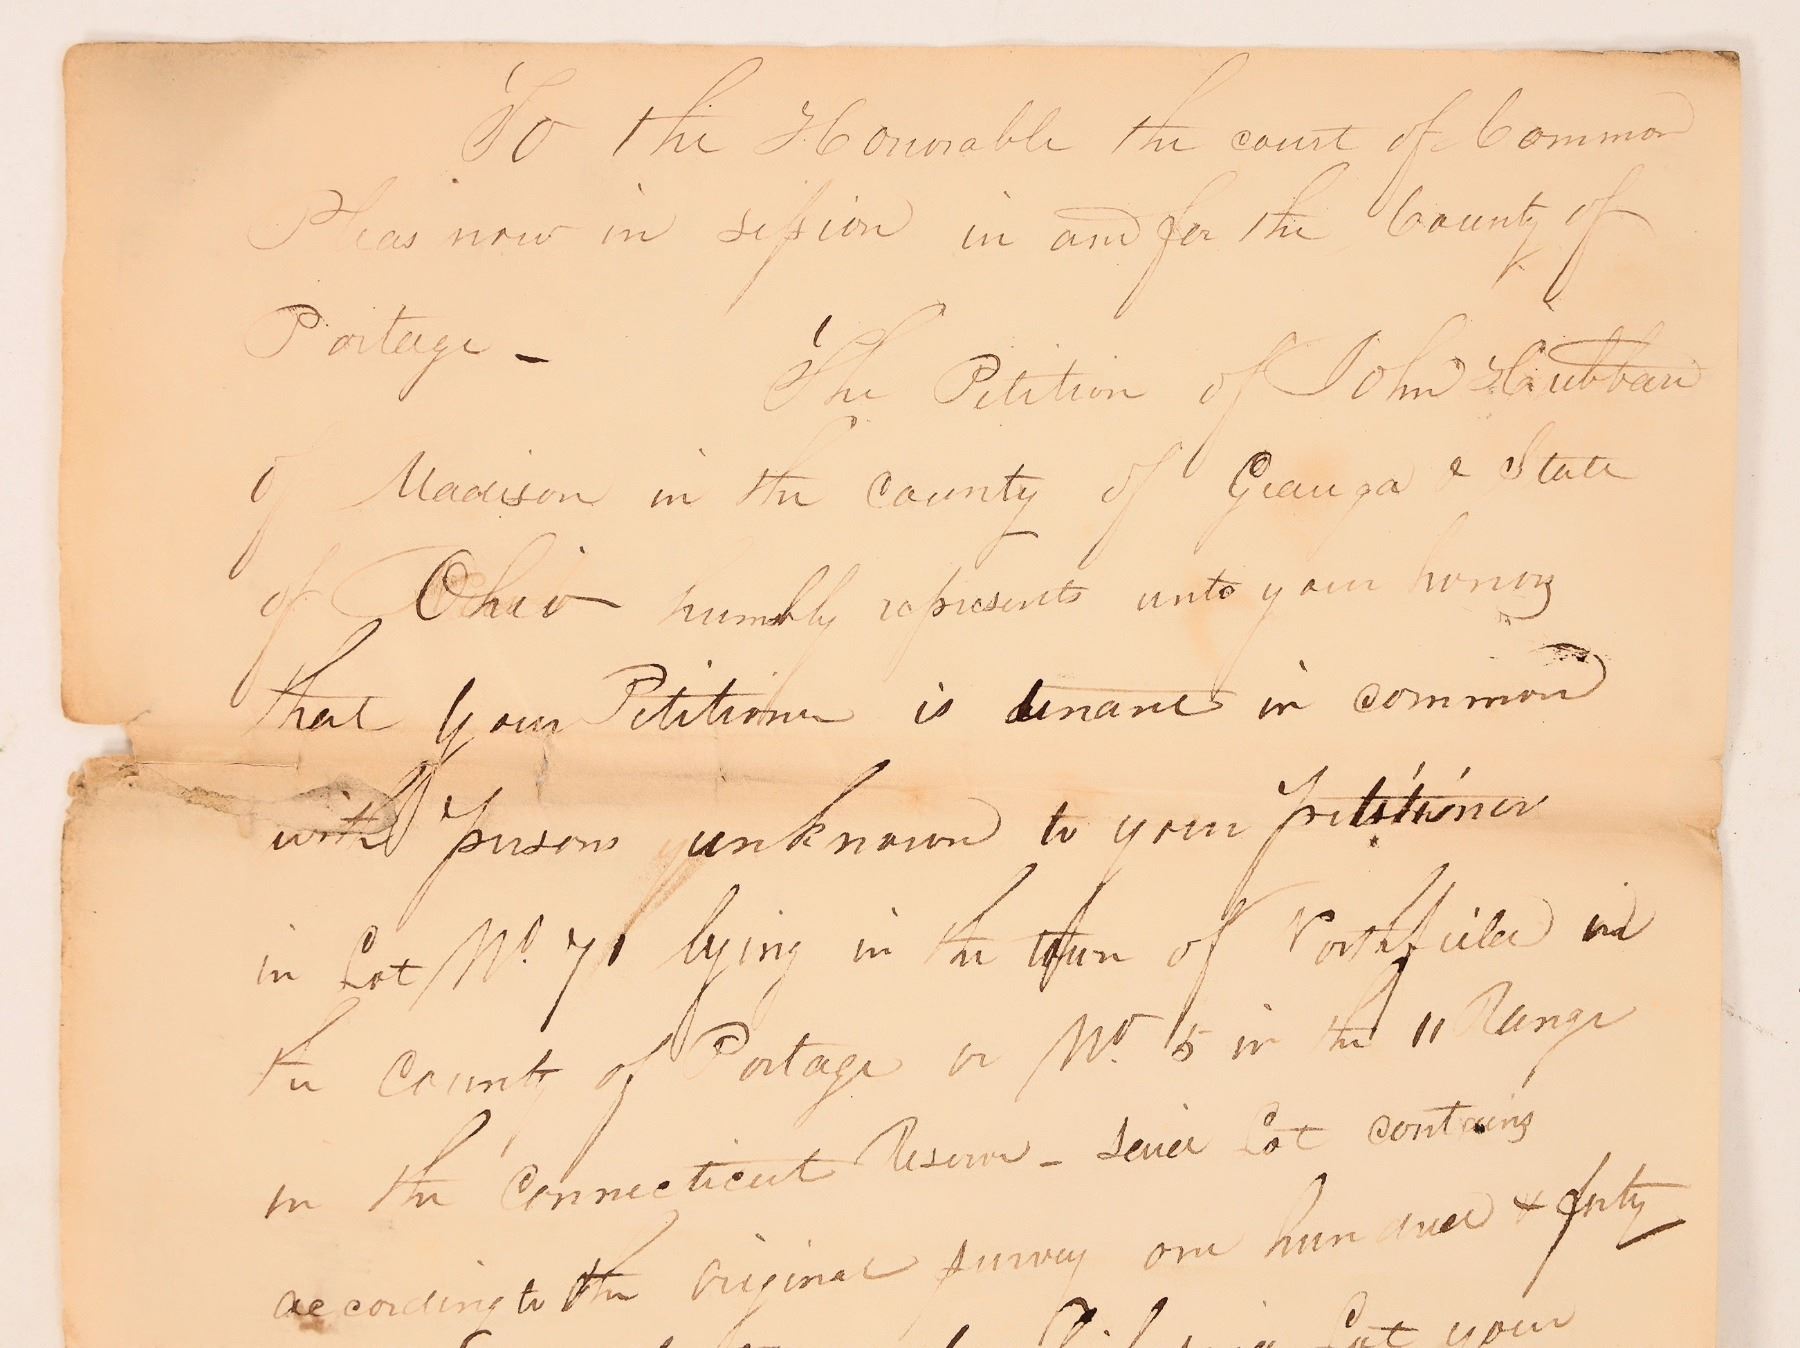 To the Honorable the court of Common
Pleas now in session in and for the County of
Portage –
The Petition of John Hubbard
of Madison in the county of Geauga & State
of Ohio humbly represents unto your honors
that your Petitioner is tenant in common
with persons unknown to your petitioner
in Lot No. 71 lying in the town of Northfield in
the County of Portage or No. 5 in the 11 Range
in the Connecticut Reserve – said Lot contains
according to the original survey one hundred & forty
Lot your